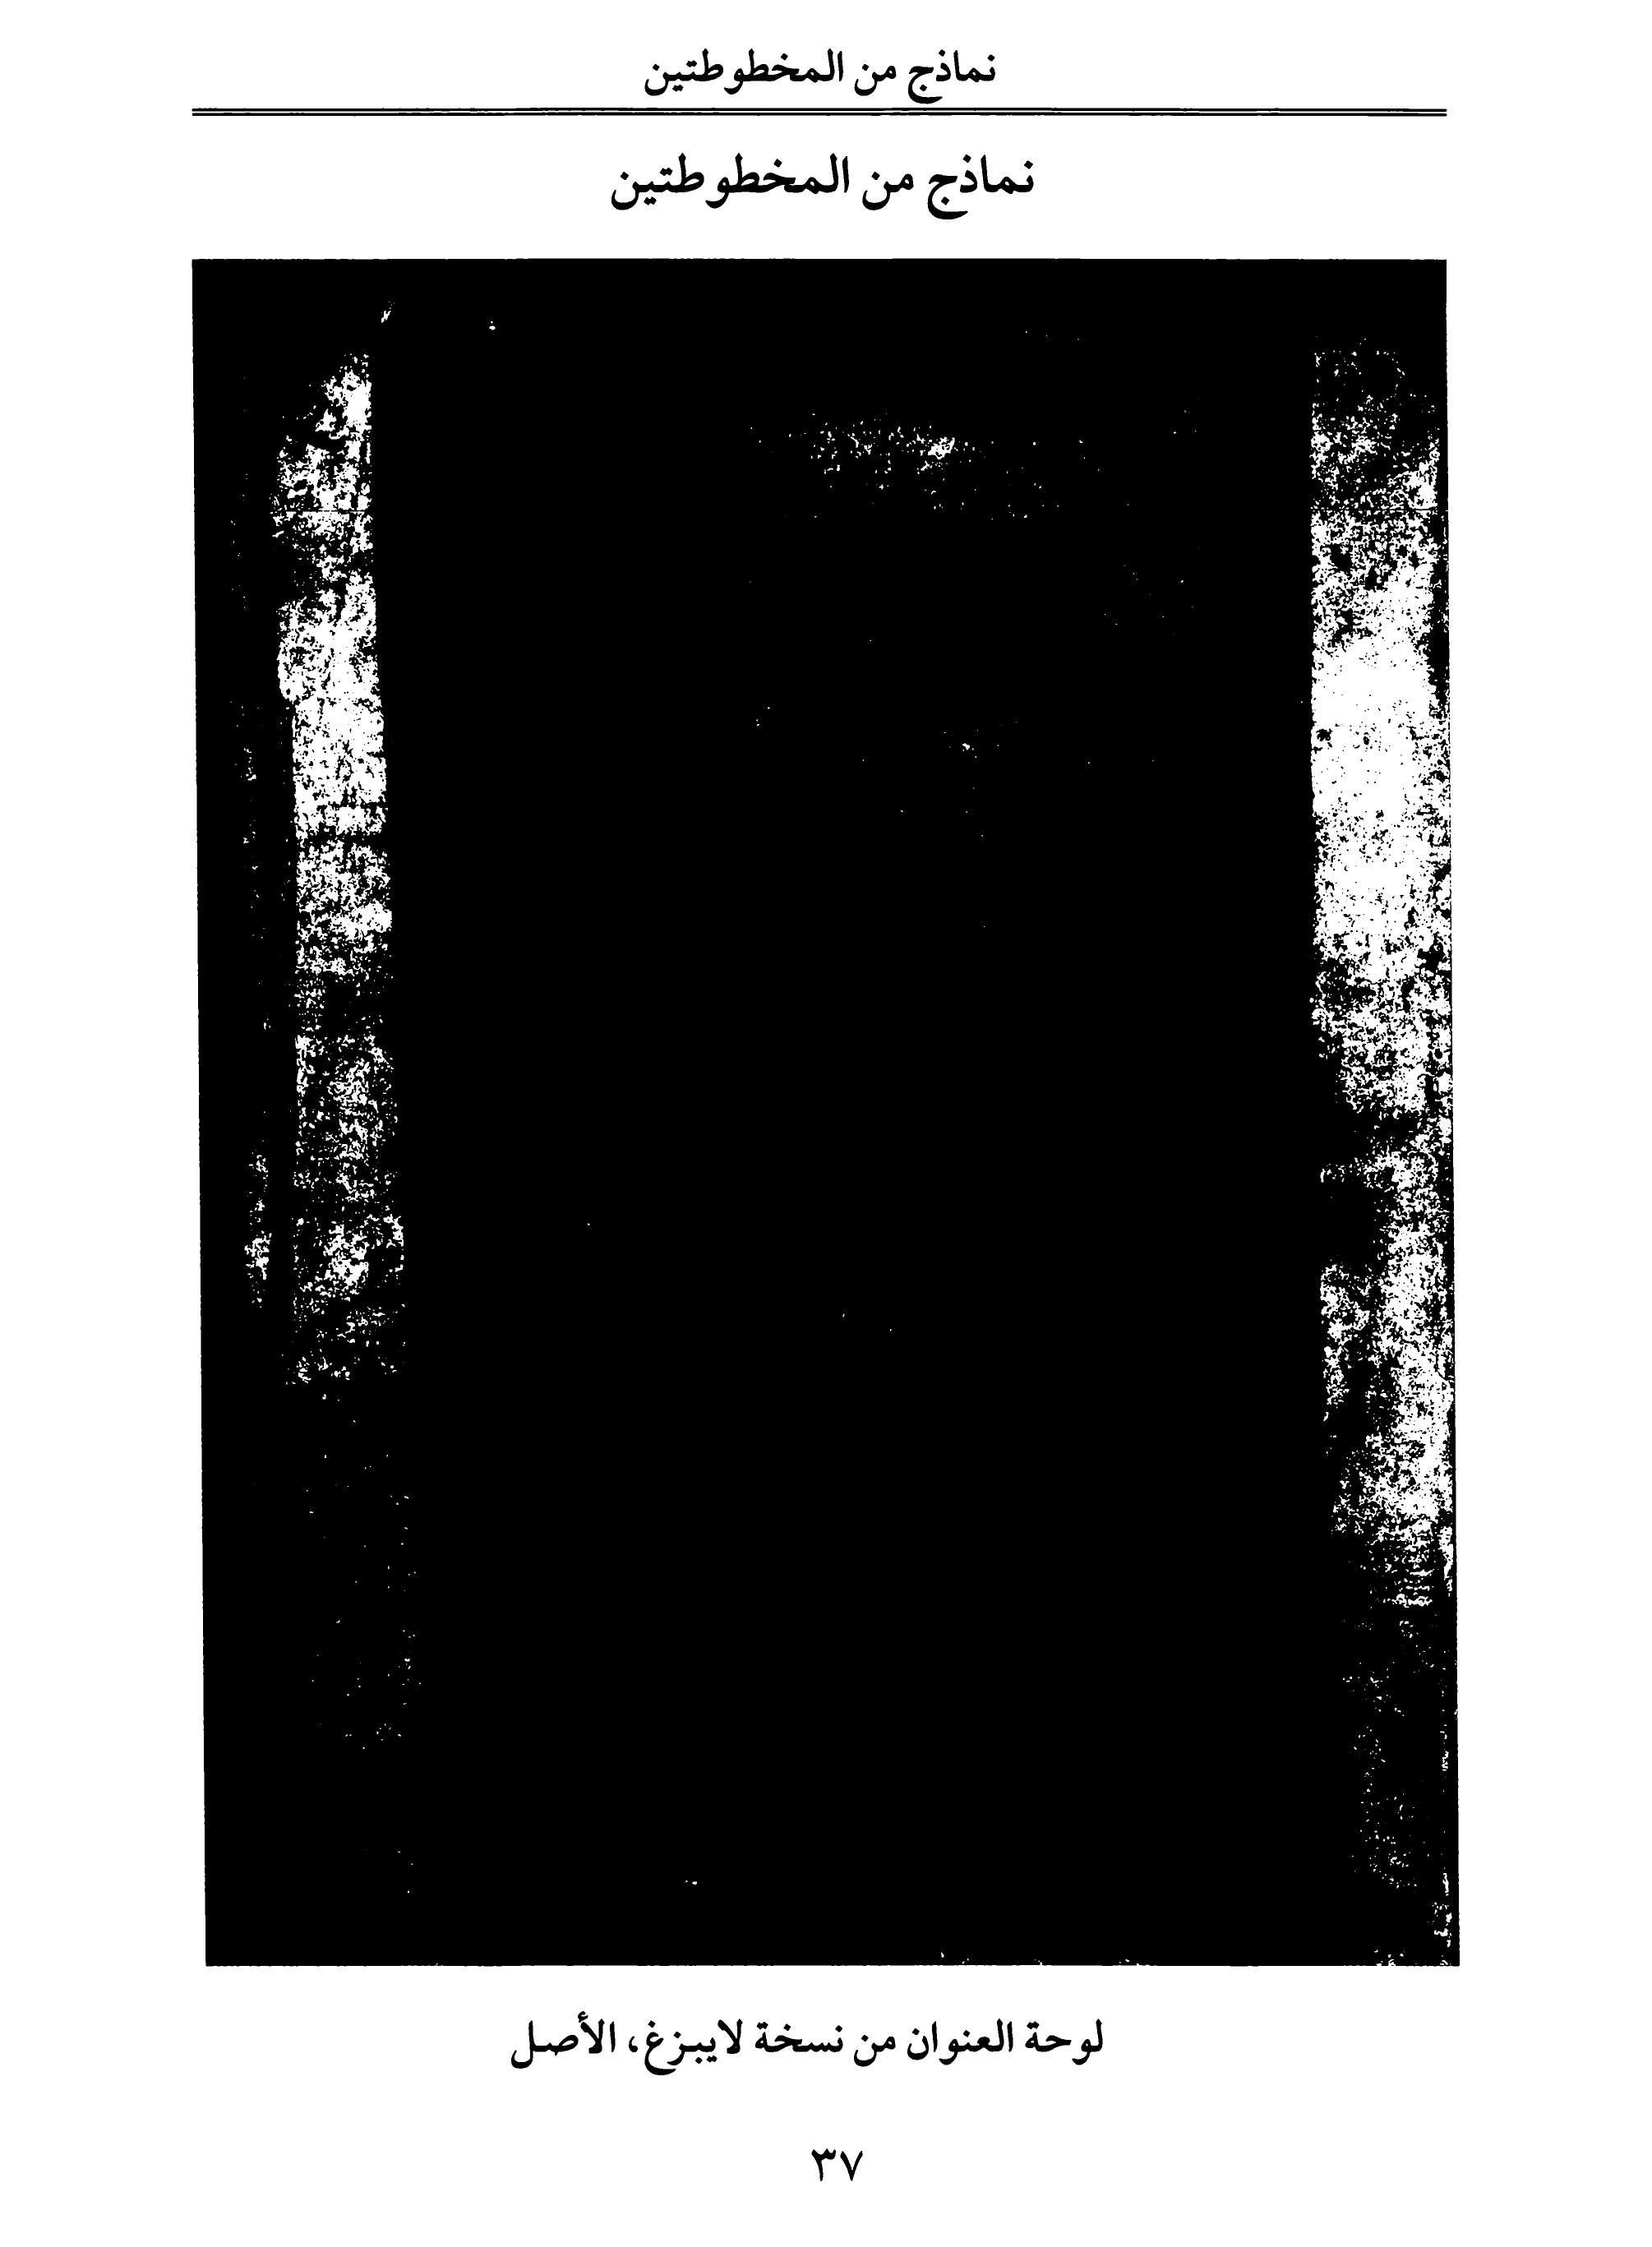 نماذج من المخطوطتين
نماذج من المخطوطتين
لوحة العنوان من نسخة لايبزغ، الأصل
٣٧